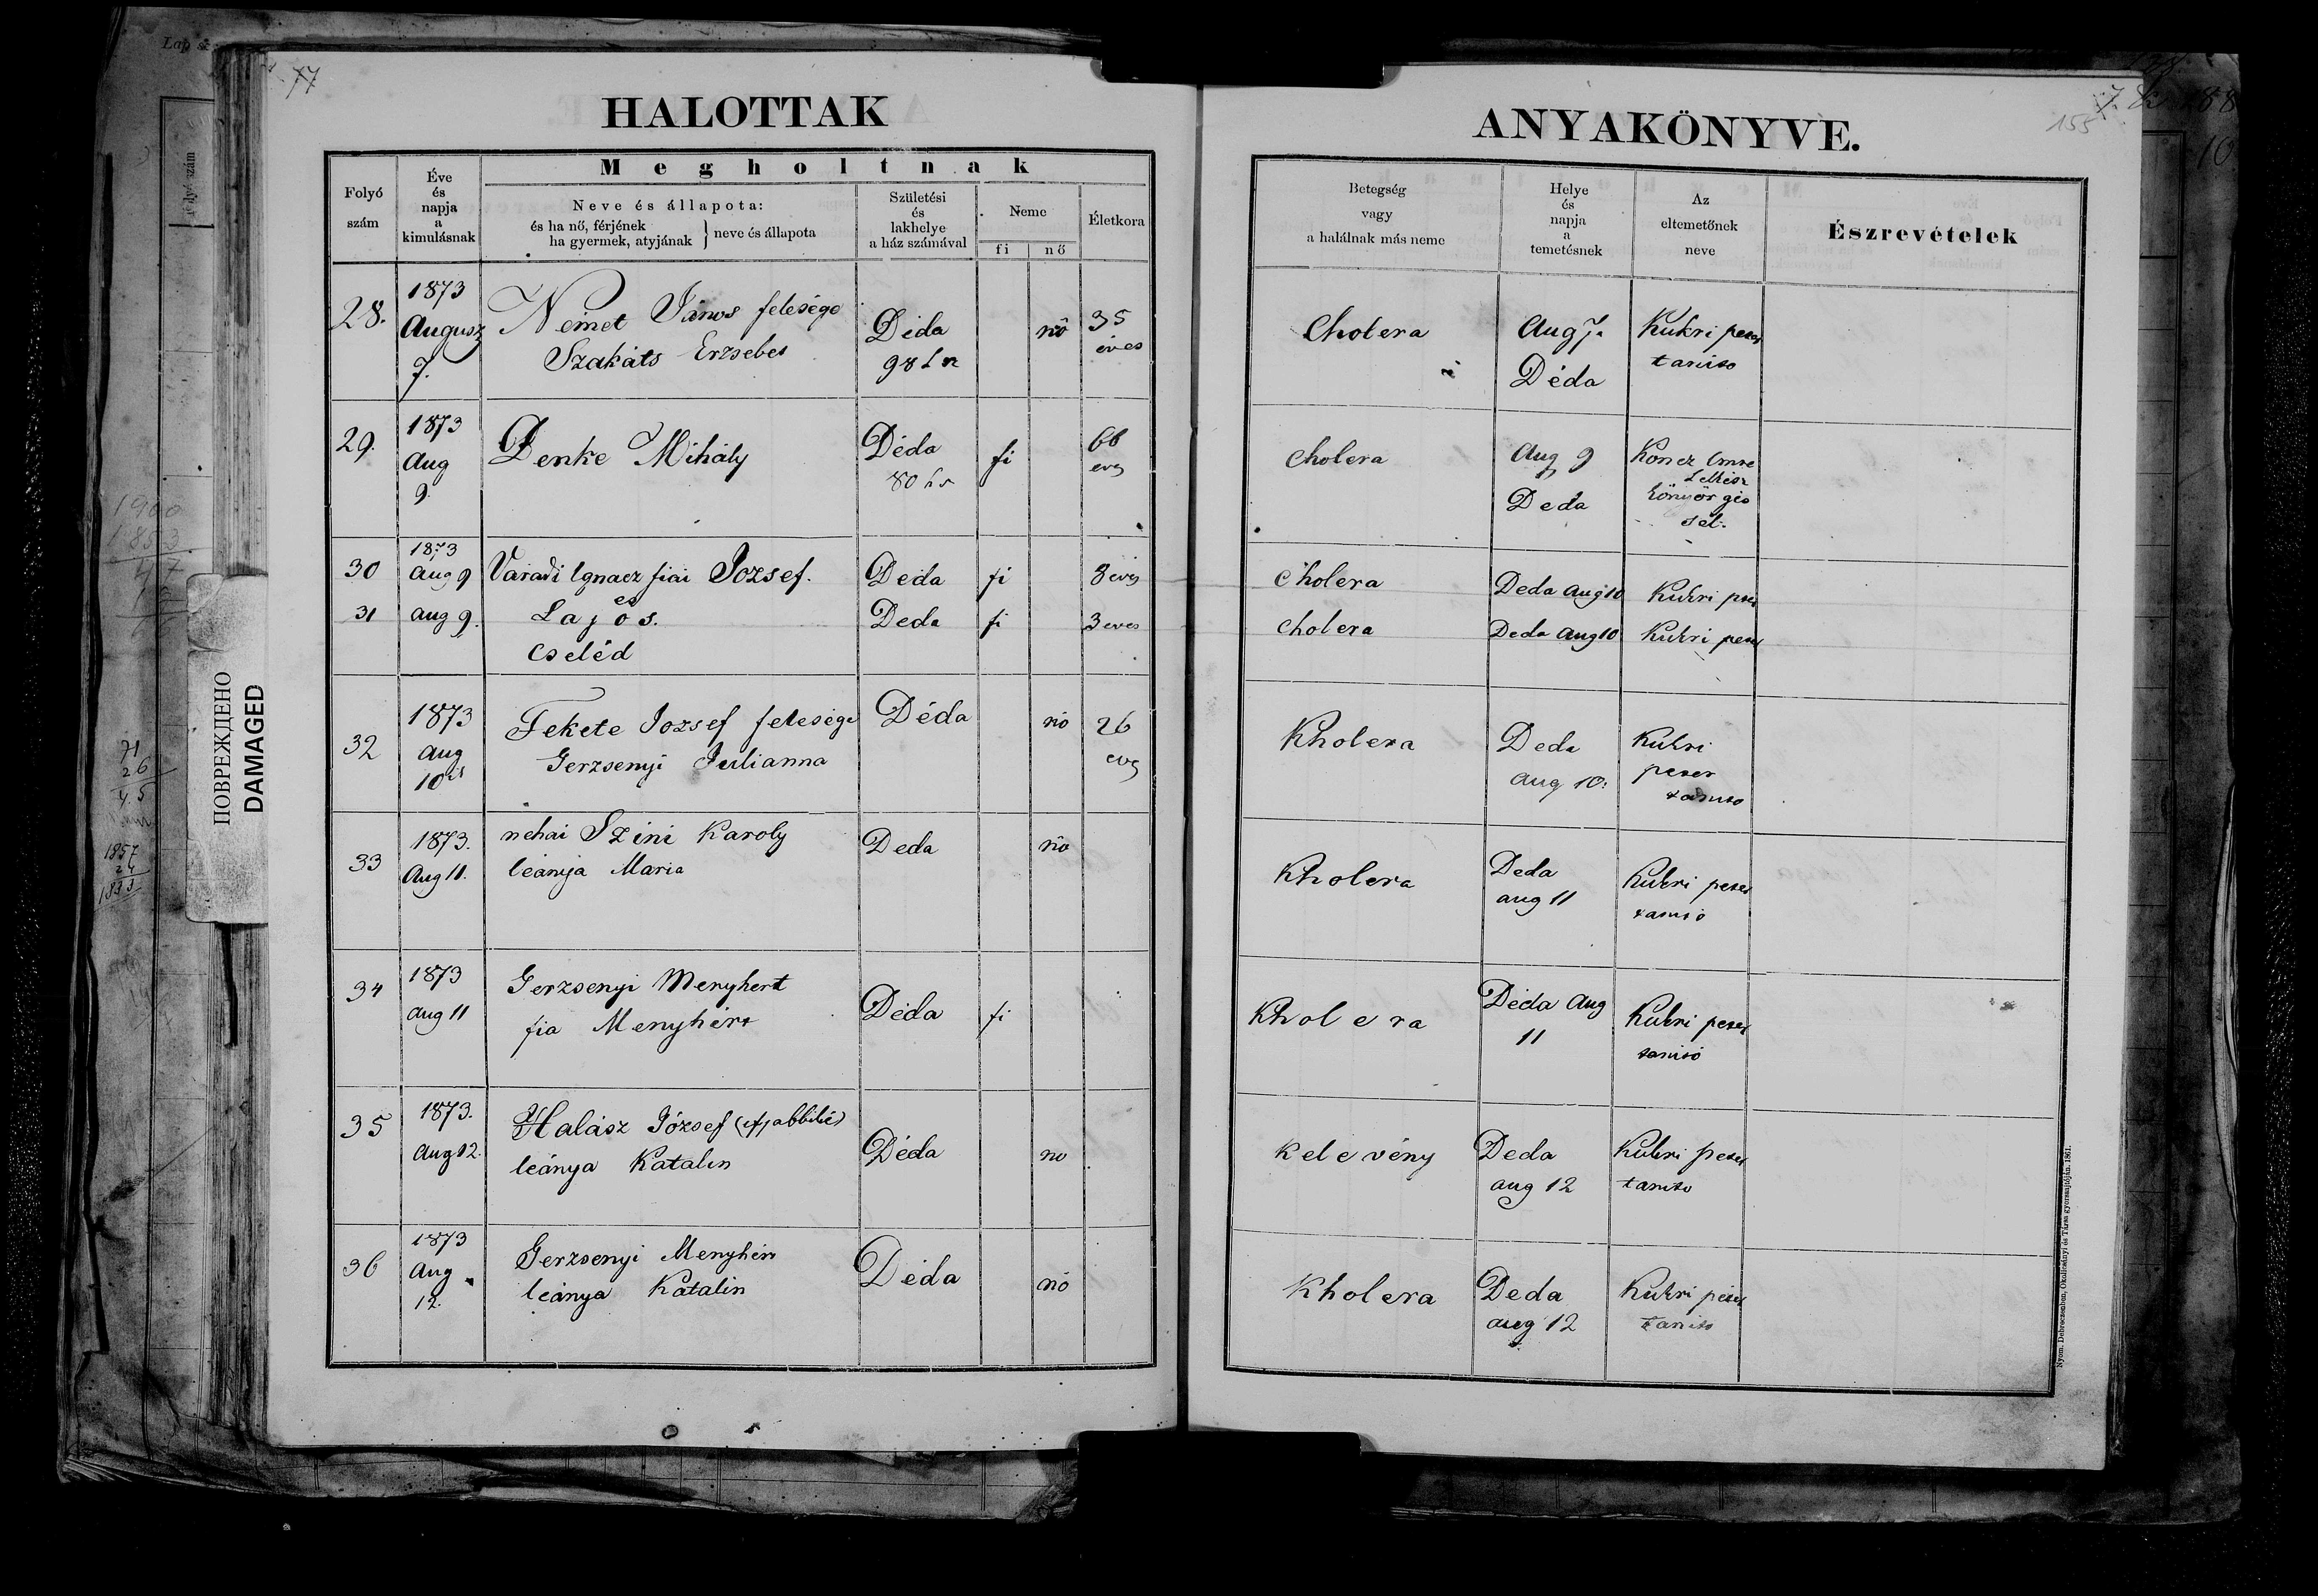 77
HALOTTAK
Folyó
szám
Éve
és
napja
a
kimulásnak
Megholtnak
Neve és állapota:
és ha nő, férjének
ha gyermek, atyjának } neve és állapota
Születési
és
lakhelye
a ház számával
Neme
fi
nő
Életkora
28.
1873
Augusz
7.
Német János felesége
Szakáts Erzsebet
Déda
98
nő
35
éves
29.
1873
Aug
9.
Denke Mihály
Déda
80
fi
66
eves
30
1873
Aug 9
Váradi Ignacz fiai Jozsef.
és
Deda
fi
8 eves
31
Aug 9.
Lajos.
Cseléd
Deda
fi
3 eves
32
1873
Aug
10
Fekete Jozsef felesége
Gerzsenyi Julianna
Déda
nő
26
eves
33
1873.
Aug 11.
nehai Szini Karoly
leánya Maria
Deda
nő
34
1873
Aug 11
Gerzsenyi Menyhert
fia Menyhért
Déda
fi
35
1873.
Aug 12.
Halász József
leánya Katalin
Déda
no
36
1873
Aug
12.
Gerzsenyi Menyhért
leánya Katalin
Déda
nő
ANYAKÖNYVE.
155
Betegség
vagy
a halálnak más neme
Helye
és
napja
a
temetésnek
Az
eltemetőnek
neve
Észrevételek
Cholera
Aug 7.
Déda
Kukri peter
tanito
Cholera
Aug 9
Deda
Koncz Imre
Lelkész
könyörgés
sel.
Cholera
Deda Aug 10
Kukri peter
Cholera
Deda Aug 10
Kukri peter
Kholera
Deda
Aug 10.
Kukri
peter
tanito
Kholera
Deda
aug 11
Kukri peter
tanitó
Kholera
Déda Aug
11
Kukri peter
tanitó
Kelevény
Deda
aug 12
Kukri peter
tanito
Kholera
Deda
aug 12
Kukri péter
tanito
Nyom. Debreczenben, Okolicsányi és Társa gyorssajtóján. 1861.
ПОВРЕЖДЕНО
DAMAGED
1900
1853
47
71
26
45
1857
24
1833